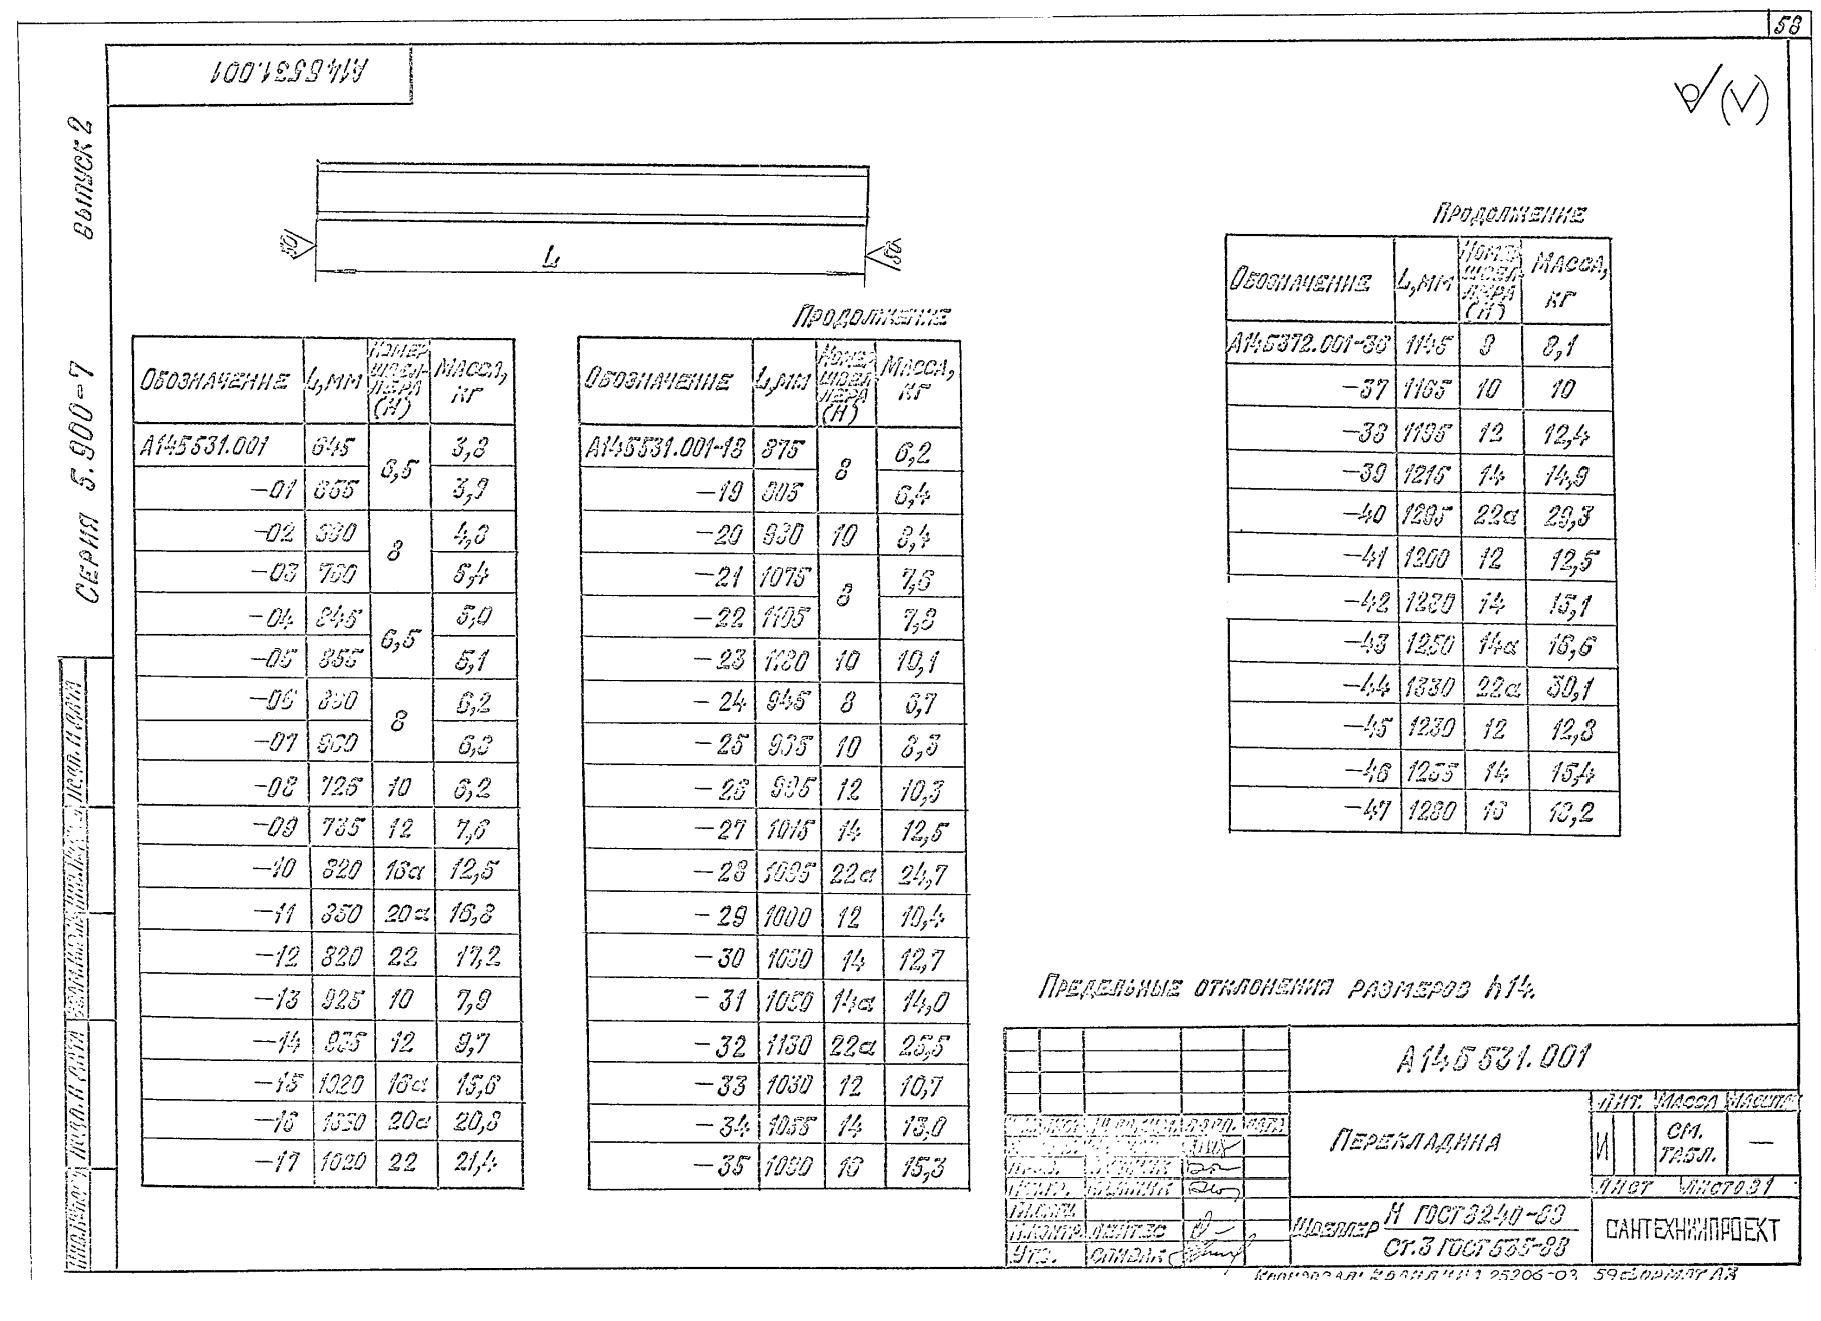 58
А14Б531.001
ВЫПУСК 2
СЕРИЯ 5.900-7
50 L 50
ОБОЗНАЧЕНИЕ L,ММ НОМЕР ШВЕЛЛЕРА (Н) МАССА, КГ
А14Б531.001 645 6,5 3,8
-01 655 3,9
-02 690 8 4,8
-03 760 5,4
-04 845 6,5 5,0
-05 855 5,1
-06 890 8 6,2
-07 960 6,8
-08 725 10 6,2
-09 735 12 7,6
-10 820 16а 12,5
-11 850 20а 16,8
-12 820 22 17,2
-13 925 10 7,9
-14 935 12 9,7
-15 1020 16а 15,6
-16 1050 20а 20,8
-17 1020 22 21,4
ПРОДОЛЖЕНИЕ
ОБОЗНАЧЕНИЕ L,ММ НОМЕР ШВЕЛЛЕРА (Н) МАССА, КГ
А14Б531.001-18 875 8 6,2
-19 905 6,4
-20 980 10 8,4
-21 1075 8 7,6
-22 1105 7,8
-23 1180 10 10,1
-24 945 8 6,7
-25 965 10 8,3
-26 995 12 10,3
-27 1015 14 12,5
-28 1095 22а 24,7
-29 1000 12 10,4
-30 1030 14 12,7
-31 1050 14а 14,0
-32 1130 22а 25,5
-33 1030 12 10,7
-34 1055 14 13,0
-35 1080 16 15,3
ПРОДОЛЖЕНИЕ
ОБОЗНАЧЕНИЕ L,ММ НОМЕР ШВЕЛЛЕРА (Н) МАССА, КГ
А14Б372.001-36 1145 8 8,1
-37 1165 10 10
-38 1195 12 12,4
-39 1215 14 14,9
-40 1295 22а 29,3
-41 1200 12 12,5
-42 1230 14 15,1
-43 1250 14а 16,6
-44 1330 22а 30,1
-45 1230 12 12,8
-46 1255 14 15,4
-47 1280 16 18,2
ПРЕДЕЛЬНЫЕ ОТКЛОНЕНИЯ РАЗМЕРОВ h14.
А14Б531.001
ПЕРЕКЛАДИНА
ЛИТ. МАССА МАСШТАБ
И СМ. ТАБЛ. —
ЛИСТ ЛИСТОВ 1
ШВЕЛЛЕР Н ГОСТ 8240-89
Ст.3 ГОСТ 535-88
САНТЕХНИИПРОЕКТ
Н.КОНТР.
УТВ. СПИВАК
25206-03 59 ФОРМАТ А3